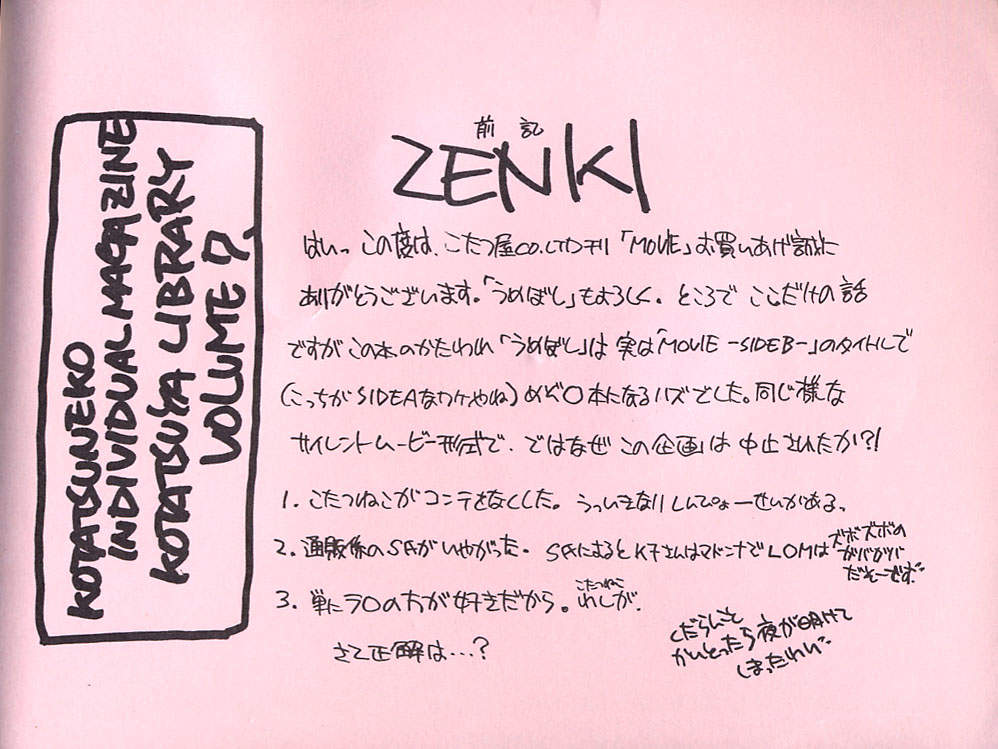 KOTATSUNEKO
INDIVIDUAL MAGAZINE
KOTATSUYA LIBRARY
VOLUME 7.
前記
ZENKI
はいっ この度は、こたつ屋CO.LTD刊「MOVIE」お買いあげ誠に
ありがとうございます。「うめぼし」もよろしく。ところで ここだけの話
ですが この本のかたわれ「うめぼし」は 実は「MOVIE -SIDEB-」のタイトルで
(こっちがSIDEAなワケやね)めぞ〇本になるハズでした。同じ様な
サイレントムービー形式で。ではなぜ この企画は 中止されたか?!
1. こたつねこがコンテをなくした。 うっいきなりしんぴょーせいがある。
2. 通販係のS氏がいやがった。 S氏によるとK子さんはマドンナでLOMは
ズボズボの
ガバガバ
だそーです。
3. 単にラ〇の方が好きだから。
こたつねこ
わしが。
さて正解は…?
くだらんこと
かいとったら夜が明けて
しまったわい